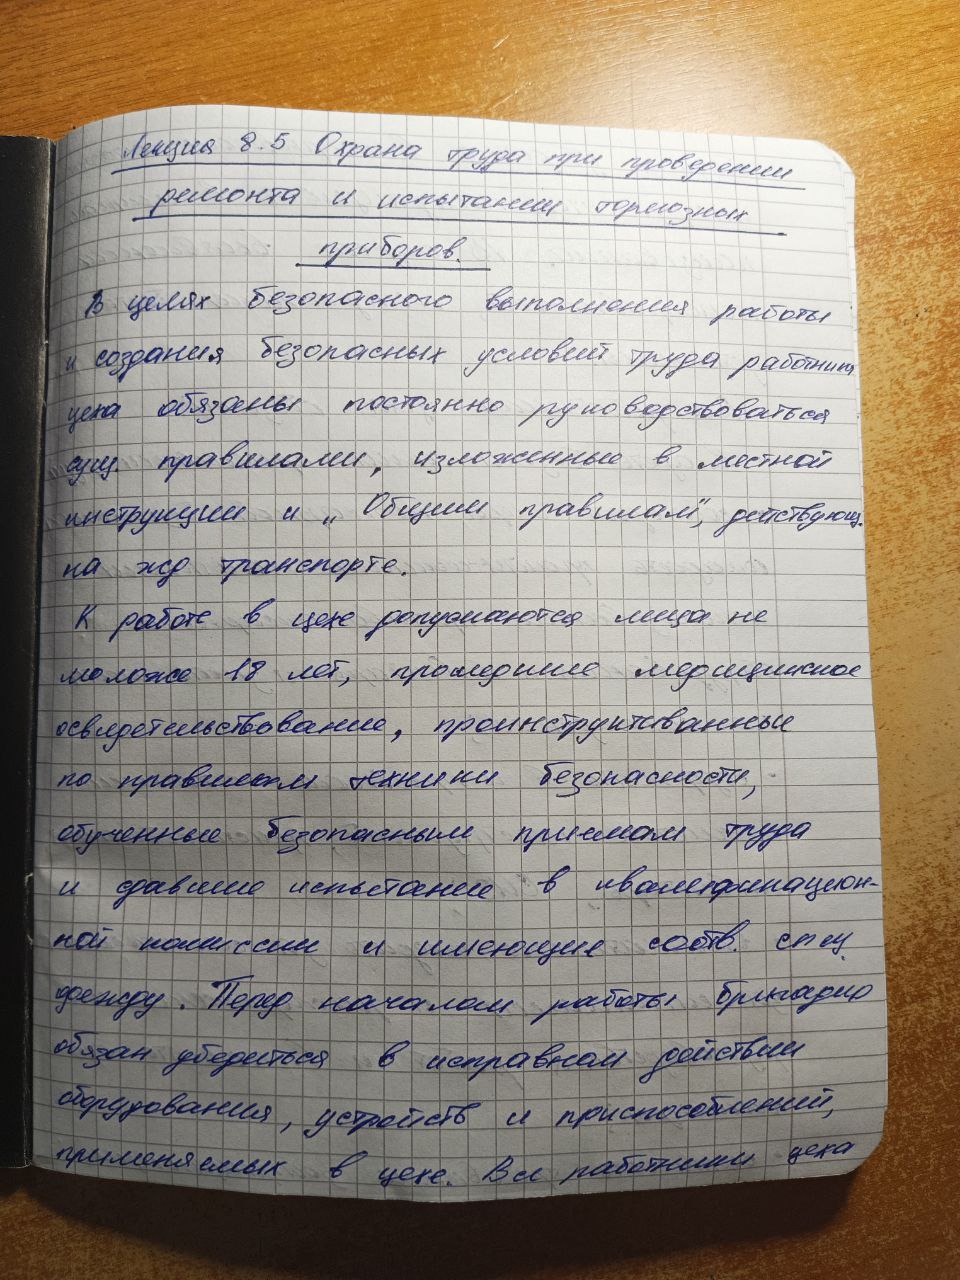 Лекция 8.5 Охрана труда при проведении
ремонта и испытании тормозных
приборов.
В целях безопасного выполнения работы
и создания безопасных условий труда работники
цеха обязаны постоянно руководствоваться
сущ. правилами, изложенные в местной
инструкции и „Общим правилам", действующ.
на жд транспорте.
К работе в цехе допускаются лица не
моложе 18 лет, прошедшие медицинское
освидетельствование, проинструктированные
по правилам техники безопасности,
обученные безопасным приемам труда
и сдавшие испытание в квалификацион-
ной комиссии и имеющие соотв. спец.
одежду. Перед началом работы бригадир
обязан убедиться в исправном действии
оборудования, устройств и приспособлений,
применяемых в цехе. Все работники цеха